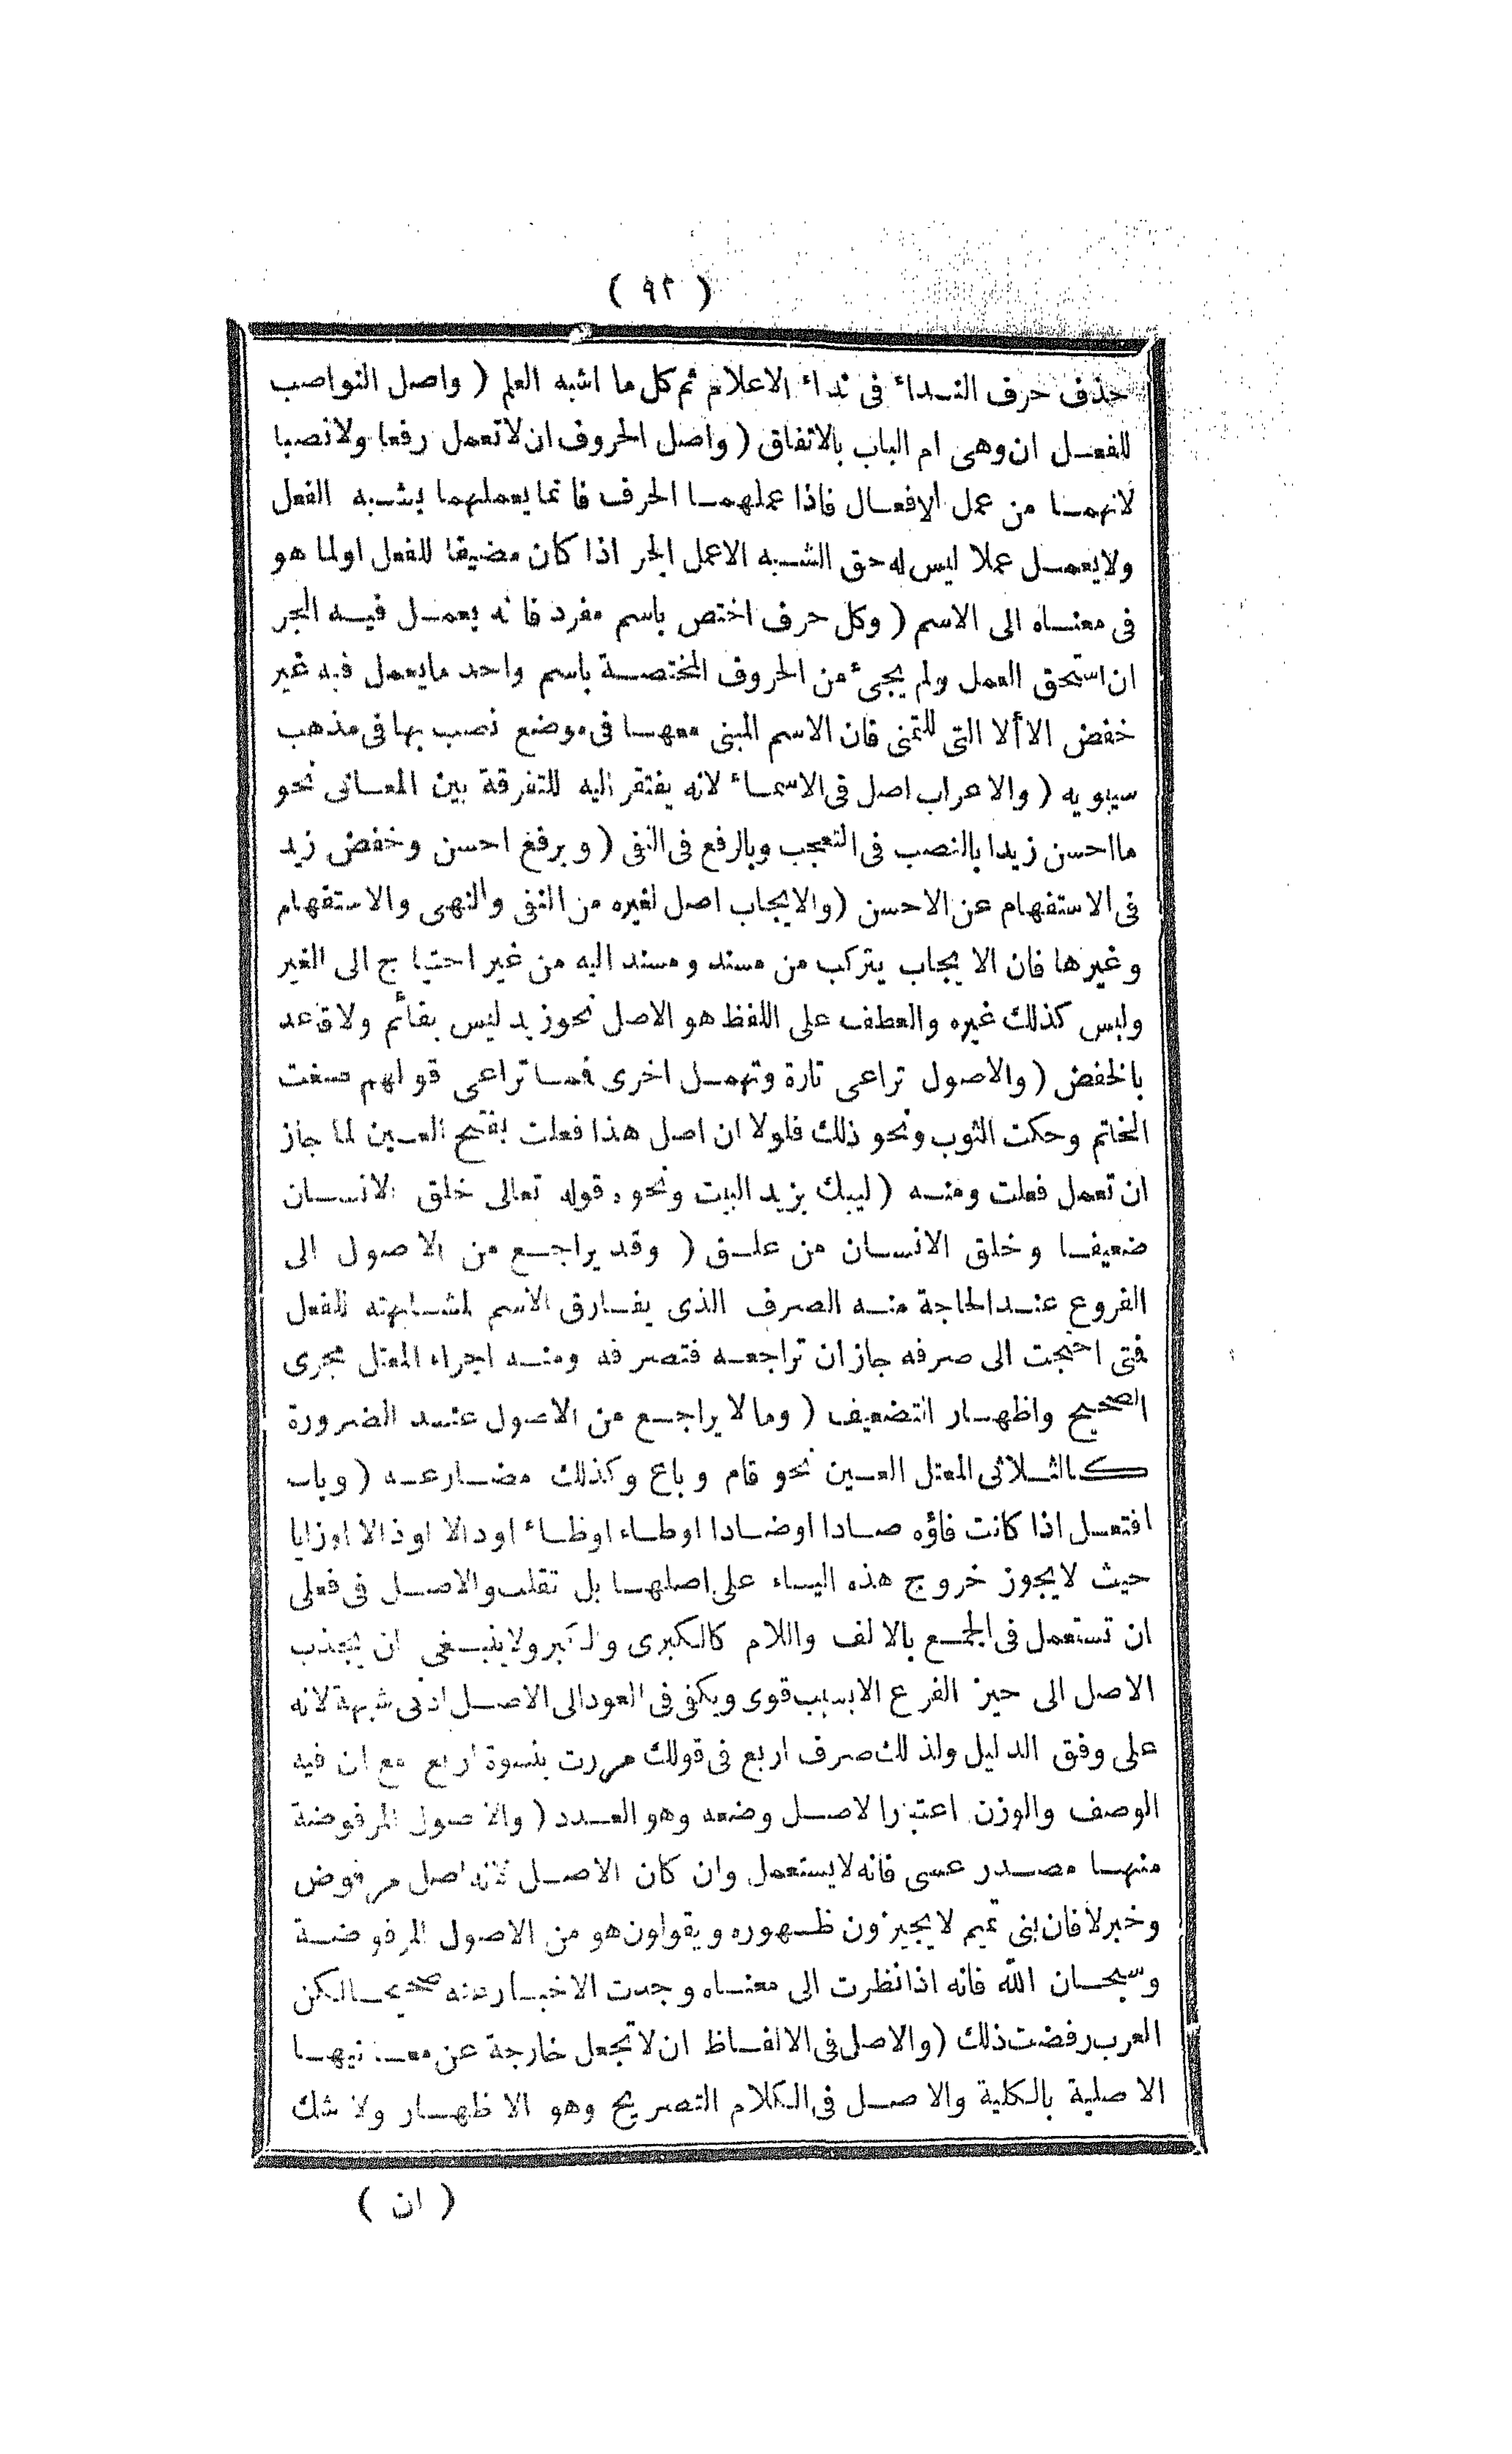 ( ٩٢ )
حذف حرف النداء فى نداء الاعلام ثم كل ما اشبه العلم ( واصل النواصب
للفعل ان وهى ام الباب بالاتفاق ( واصل الحروف ان لا تعمل رفعا ولا نصبا
لانهما من عمل الافعال فاذا عملهما الحرف فانما يعملهما بشبه الفعل
ولا يعمل عملا ليس له حق الشبه الا عمل الجر اذا كان مضيفا للفعل او لما هو
فى معناه الى الاسم ( وكل حرف اختص باسم مفرد فانه يعمل فيه الجر
ان استحق العمل ولم يجئ من الحروف المختصة باسم واحد ما يعمل فيه غير
خفض الا ألا التى للتمنى فان الاسم المبنى معها فى موضع نصب بها فى مذهب
سيبويه ( والاعراب اصل فى الاسماء لانه يفتقر اليه للتفرقة بين المعانى نحو
ما احسن زيدا بالنصب فى التعجب وبالرفع فى النفى ( وبرفع احسن وخفض زيد
فى الاستفهام عن الاحسن ( والايجاب اصل لغيره من النفى والنهى والاستفهام
وغيرها فان الايجاب يتركب من مسند ومسند اليه من غير احتياج الى الغير
وليس كذلك غيره والعطف على اللفظ هو الاصل نحو زيد ليس بقائم ولا قاعد
بالخفض ( والاصول تراعى تارة وتهمل اخرى فما تراعى قولهم صغت
الخاتم وحكت الثوب ونحو ذلك فلولا ان اصل هذا فعلت بفتح العين لما جاز
ان تعمل فعلت ومنه ( ليبك يزيد البيت ونحوه قوله تعالى خلق الانسان
ضعيفا وخلق الانسان من علق ( وقد يراجع من الاصول الى
الفروع عند الحاجة منه الصرف الذى يفارق الاسم لمشابهته للفعل
فمتى احتجت الى صرفه جاز ان تراجعه فتصرفه ومنه اجراء المعتل مجرى
الصحيح واظهار التضعيف ( وما لا يراجع من الاصول عند الضرورة
كالثلاثى المعتل العين نحو قام وباع وكذلك مضارعه ( وباب
افتعل اذا كانت فاؤه صادا او ضادا او طاء او ظاء او دالا او ذالا او زايا
حيث لا يجوز خروج هذه الياء على اصلها بل تقلب والاصل فى فعلى
ان تستعمل فى الجمع بالالف واللام كالكبرى والكبر ولا ينبغى ان يجذب
الاصل الى حيز الفرع الا بسبب قوى ويكفى فى العود الى الاصل ادنى شبهة لانه
على وفق الدليل ولذلك صرف اربع فى قولك مررت بنسوة اربع مع ان فيه
الوصف والوزن اعتبارا لاصل وضعه وهو العدد ( والاصول المرفوضة
منها مصدر عسى فانه لا يستعمل وان كان الاصل لانه اصل مرفوض
وخبر لا فان بنى تميم لا يجيزون ظهوره ويقولون هو من الاصول المرفوضة
وسبحان الله فانه اذا نظرت الى معناه وجدت الاخبار عنه صحيحا لكن
العرب رفضت ذلك ( والاصل فى الالفاظ ان لا تجعل خارجة عن معانيها
الاصلية بالكلية والاصل فى الكلام التصريح وهو الاظهار ولا شك
( ان )